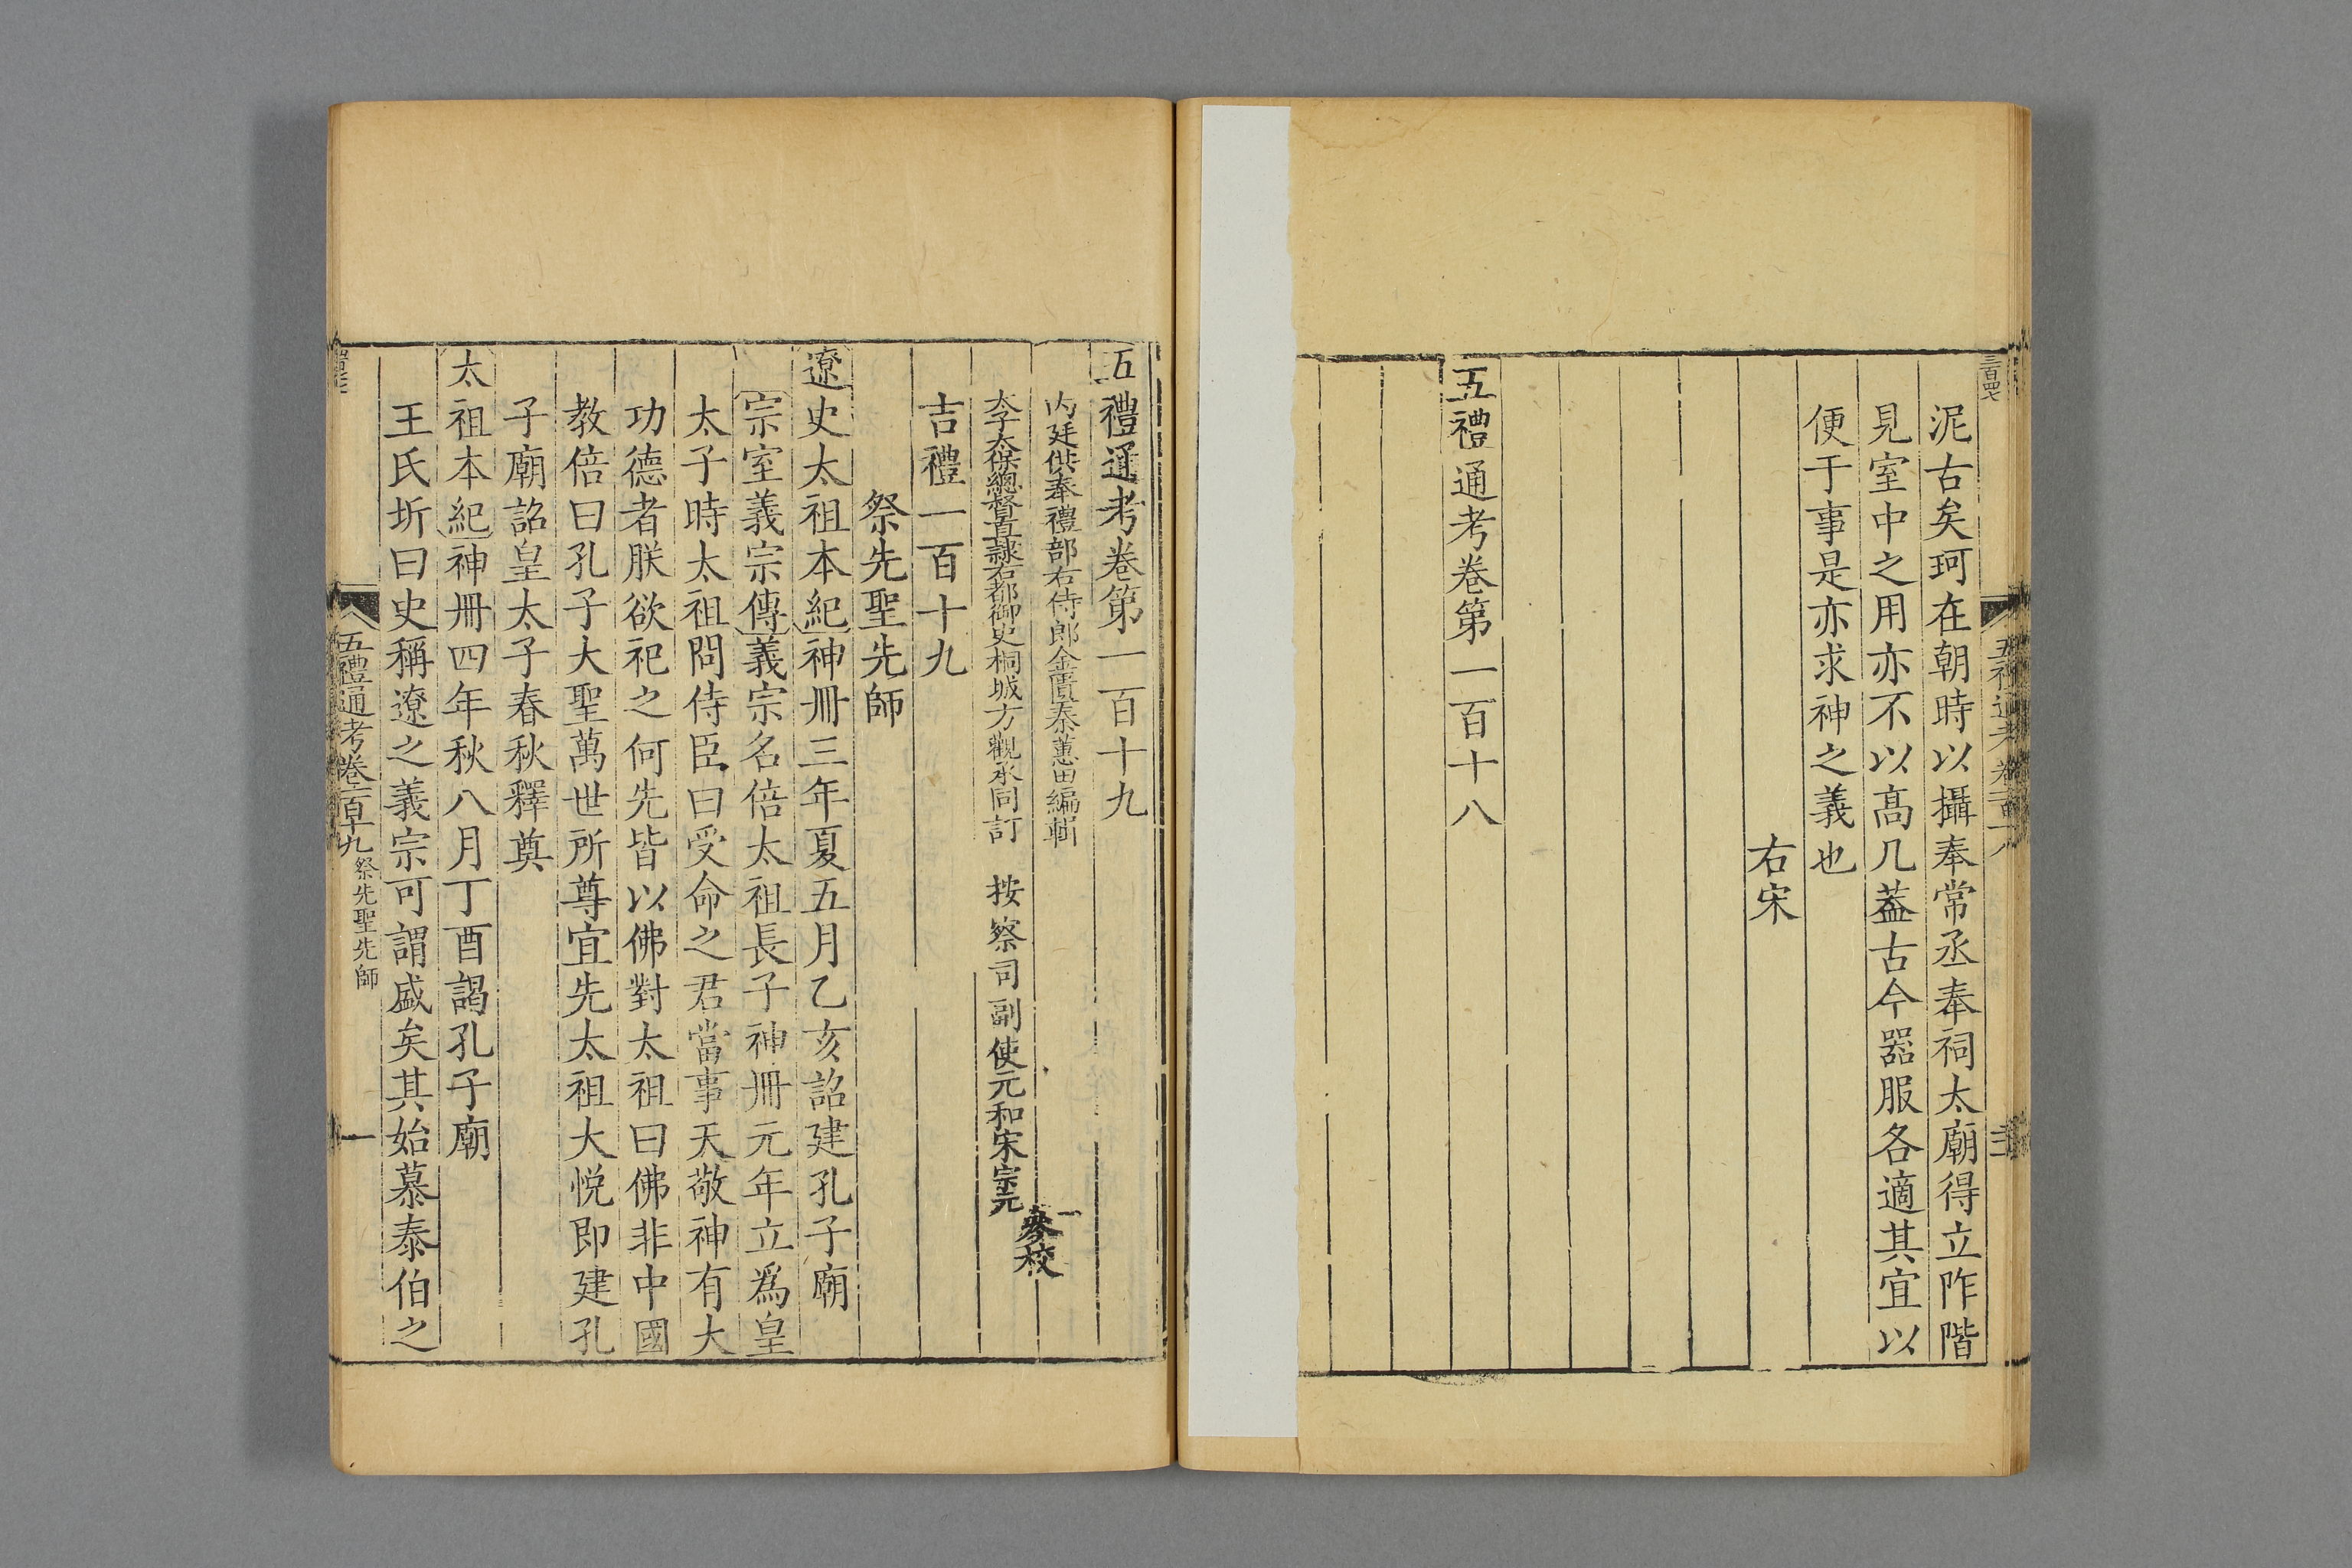 三百四七
泥古矣珂在朝時以攝奉常丞奉祠太廟得立阼階
見室中之用亦不以高几葢古今器服各適其宜以
便于事是亦求神之義也
右宋
五禮通考卷第一百十八
五禮通考卷第一百十九
内廷供奉禮部右侍郎金匱秦蕙田編輯
太子太保總督直隷右都御史桐城方觀承同訂
按察司副使元和宋宗元
參校
吉禮一百十九
祭先聖先師
遼史太祖本紀神冊三年夏五月乙亥詔建孔子廟
宗室義宗傳義宗名倍太祖長子神冊元年立爲皇
太子時太祖問侍臣曰受命之君當事天敬神有大
功德者朕欲祀之何先皆以佛對太祖曰佛非中國
教倍曰孔子大聖萬世所尊宜先太祖大悅即建孔
子廟詔皇太子春秋釋奠
太祖本紀神冊四年秋八月丁酉謁孔子廟
王氏圻曰史稱遼之義宗可謂盛矣其始慕泰伯之
五禮通考卷一百十九 祭先聖先師 一